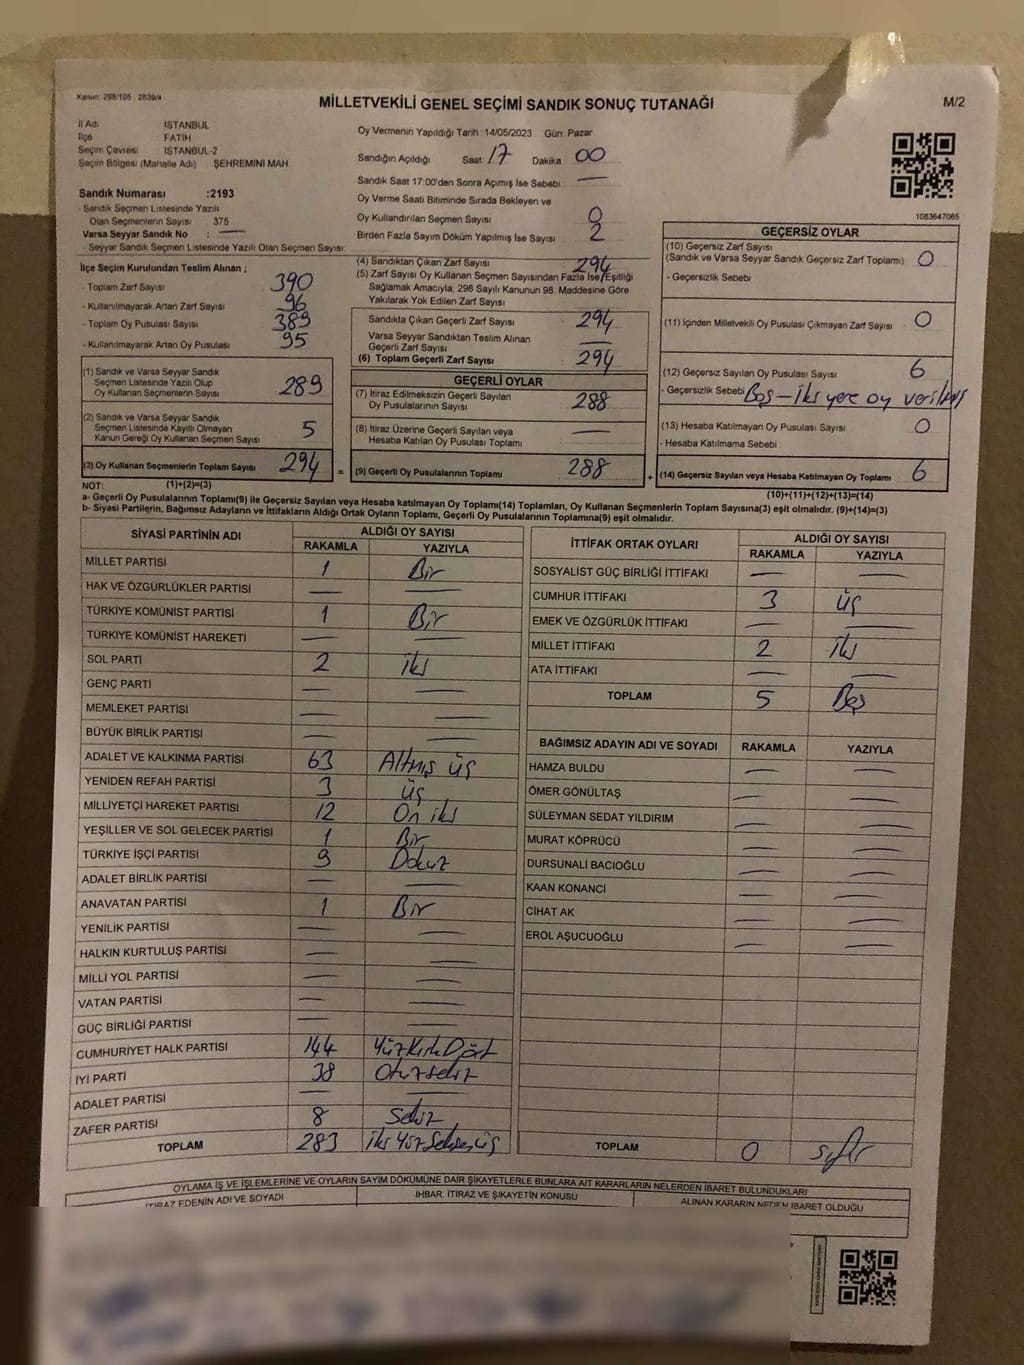 Kanun: 298/105 2839/4
MİLLETVEKİLİ GENEL SEÇİMİ SANDIK SONUÇ TUTANAĞI
M/2
İl Adı İSTANBUL
İlçe FATİH
Seçim Çevresi İSTANBUL-2
Seçim Bölgesi (Mahalle Adı) ŞEHREMİNİ MAH.
Sandık Numarası :2193
- Sandık Seçmen Listesinde Yazılı
Olan Seçmenlerin Sayısı 375
Varsa Seyyar Sandık No : —
- Seyyar Sandık Seçmen Listesinde Yazılı Olan Seçmen Sayısı:
Oy Vermenin Yapıldığı Tarih :14/05/2023 Gün: Pazar
Sandığın Açıldığı Saat: 17 Dakika 00
Sandık Saat 17:00'den Sonra Açımış İse Sebebi : —
Oy Verme Saati Bitiminde Sırada Bekleyen ve
Oy Kullandırılan Seçmen Sayısı 0
Birden Fazla Sayım Döküm Yapılmış İse Sayısı : 2
1083647065
İlçe Seçim Kurulundan Teslim Alınan ;
- Toplam Zarf Sayısı 390
- Kullanılmayarak Artan Zarf Sayısı 96
- Toplam Oy Pusulası Sayısı 389
- Kullanılmayarak Artan Oy Pusulası 95
(1) Sandık ve Varsa Seyyar Sandık
Seçmen Listesinde Yazılı Olup
Oy Kullanan Seçmenlerin Sayısı 289
(2) Sandık ve Varsa Seyyar Sandık
Seçmen Listesinde Kayıtlı Olmayan
Kanun Gereği Oy Kullanan Seçmen Sayısı 5
(3) Oy Kullanan Seçmenlerin Toplam Sayısı 294 =
(4) Sandıktan Çıkan Zarf Sayısı 294
(5) Zarf Sayısı Oy Kullanan Seçmen Sayısından Fazla İse/Eşitliği
Sağlamak Amacıyla; 298 Sayılı Kanunun 98. Maddesine Göre
Yakılarak Yok Edilen Zarf Sayısı
Sandıkta Çıkan Geçerli Zarf Sayısı 294
Varsa Seyyar Sandıktan Teslim Alınan
Geçerli Zarf Sayısı —
(6) Toplam Geçerli Zarf Sayısı 294
GEÇERLİ OYLAR
(7) İtiraz Edilmeksizin Geçerli Sayılan
Oy Pusulalarının Sayısı 288
(8) İtiraz Üzerine Geçerli Sayılan veya
Hesaba Katılan Oy Pusulası Toplamı —
(9) Geçerli Oy Pusulalarının Toplamı 288 +
GEÇERSİZ OYLAR
(10) Geçersiz Zarf Sayısı
(Sandık ve Varsa Seyyar Sandık Geçersiz Zarf Toplamı) 0
- Geçersizlik Sebebi
(11) İçinden Milletvekili Oy Pusulası Çıkmayan Zarf Sayısı 0
(12) Geçersiz Sayılan Oy Pusulası Sayısı 6
- Geçersizlik Sebebi Boş – İki yere oy verilmiş
(13) Hesaba Katılmayan Oy Pusulası Sayısı 0
- Hesaba Katılmama Sebebi
(14) Geçersiz Sayılan veya Hesaba Katılmayan Oy Toplamı 6
NOT: (1)+(2)=(3)
(10)+(11)+(12)+(13)=(14)
a- Geçerli Oy Pusulalarının Toplamı(9) ile Geçersiz Sayılan veya Hesaba katılmayan Oy Toplamı(14) Toplamları, Oy Kullanan Seçmenlerin Toplam Sayısına(3) eşit olmalıdır. (9)+(14)=(3)
b- Siyasi Partilerin, Bağımsız Adayların ve İttifakların Aldığı Ortak Oyların Toplamı, Geçerli Oy Pusulalarının Toplamına(9) eşit olmalıdır.
SİYASİ PARTİNİN ADI ALDIĞI OY SAYISI
RAKAMLA YAZIYLA
MİLLET PARTİSİ 1 Bir
HAK VE ÖZGÜRLÜKLER PARTİSİ — —
TÜRKİYE KOMÜNİST PARTİSİ 1 Bir
TÜRKİYE KOMÜNİST HAREKETİ — —
SOL PARTİ 2 iki
GENÇ PARTİ — —
MEMLEKET PARTİSİ — —
BÜYÜK BİRLİK PARTİSİ — —
ADALET VE KALKINMA PARTİSİ 63 Altmış üç
YENİDEN REFAH PARTİSİ 3 üç
MİLLİYETÇİ HAREKET PARTİSİ 12 On iki
YEŞİLLER VE SOL GELECEK PARTİSİ 1 Bir
TÜRKİYE İŞÇİ PARTİSİ 9 Dokuz
ADALET BİRLİK PARTİSİ — —
ANAVATAN PARTİSİ 1 Bir
YENİLİK PARTİSİ — —
HALKIN KURTULUŞ PARTİSİ — —
MİLLİ YOL PARTİSİ — —
VATAN PARTİSİ — —
GÜÇ BİRLİĞİ PARTİSİ — —
CUMHURİYET HALK PARTİSİ 144 YüzKırkDört
İYİ PARTİ 38 Otuzsekiz
ADALET PARTİSİ — —
ZAFER PARTİSİ 8 Sekiz
TOPLAM 283 ikiYüzSeksenüç
İTTİFAK ORTAK OYLARI ALDIĞI OY SAYISI
RAKAMLA YAZIYLA
SOSYALİST GÜÇ BİRLİĞİ İTTİFAKI — —
CUMHUR İTTİFAKI 3 üç
EMEK VE ÖZGÜRLÜK İTTİFAKI — —
MİLLET İTTİFAKI 2 iki
ATA İTTİFAKI — —
TOPLAM 5 Beş
BAĞIMSIZ ADAYIN ADI VE SOYADI RAKAMLA YAZIYLA
HAMZA BULDU — —
ÖMER GÖNÜLTAŞ — —
SÜLEYMAN SEDAT YILDIRIM — —
MURAT KÖPRÜCÜ — —
DURSUNALİ BACIOĞLU — —
KAAN KONANCİ — —
CİHAT AK — —
EROL AŞUCUOĞLU — —
TOPLAM 0 sıfır
OYLAMA İŞ VE İŞLEMLERİNE VE OYLARIN SAYIM DÖKÜMÜNE DAİR ŞİKAYETLERLE BUNLARA AİT KARARLARIN NELERDEN İBARET BULUNDUKLARI
İTİRAZ EDENİN ADI VE SOYADI İHBAR, İTİRAZ VE ŞİKAYETİN KONUSU ALINAN KARARIN NEDEN İBARET OLDUĞU